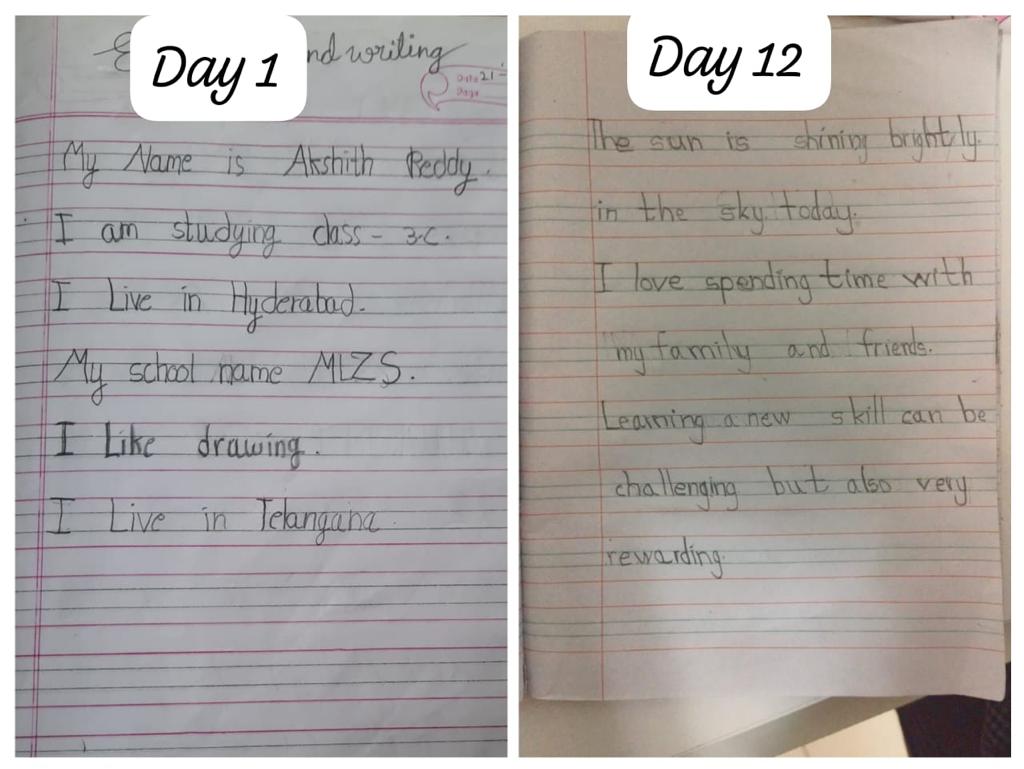 Day 1
nd writing
Date 21-
Page
My Name is Akshith Reddy.
I am studying class - 3-C.
I Live in Hyderabad.
My school name MLZS.
I Like drawing.
I Live in Telangana
Day 12
The sun is shining brightly.
in the sky today.
I love spending time with
my family and friends.
Learning a new skill can be
challenging but also very
rewarding.